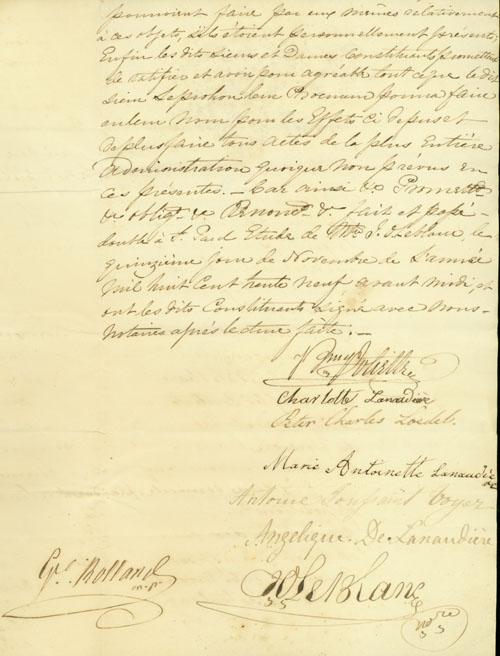 pourroient faire par eux mêmes relativement
à ces objets, s'ils étoient personnellement présents;
Enfin les dits Sieurs et Dames Constituants promettent
de ratifier et avoir pour agréable tout ce que le dit
Sieur Leprohon leur Procureur pourra faire
en leur Nom pour les Effets ci dessus et
de plus faire tous actes de la plus Entière
administration quoique non prevus en
ces présentes. — Car ainsi &c Promett.
&c oblig. &c Renonc. &c. fait et passé
double à St. Paul Etude de Mtre J. O. Leblanc, le
quinzième jour de Novembre de L'année
Mil huit Cent trente neuf, avant midi, et
ont les dits Constituants signé avec nous
Notaires après lecture faite. —
Joliette
Charlotte Lanaudière
Peter Charles Loedel.
Marie Antoinette Lanaudière
Antoine Toussaint Voyer
Angelique De Lanaudière
Rolland
N. P.
LeBlanc
N re